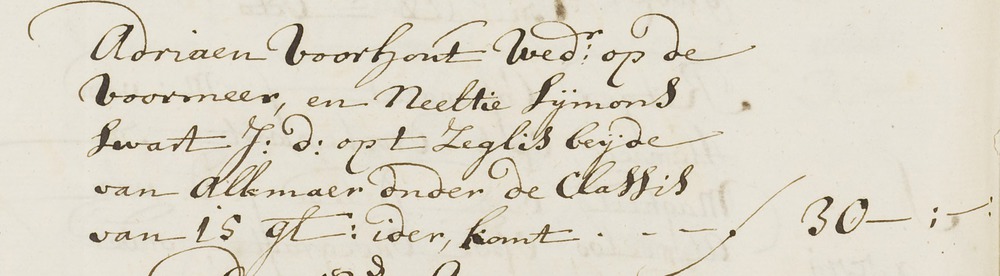 Adriaen Voorhout Wedr: op de
Voormeer, en Neeltie Sijmons
Swart J: d: opt Zeglis beijde
van Alkmaer onder de Classis
van 15 gl: ider, komt . - - - / 30 - : -